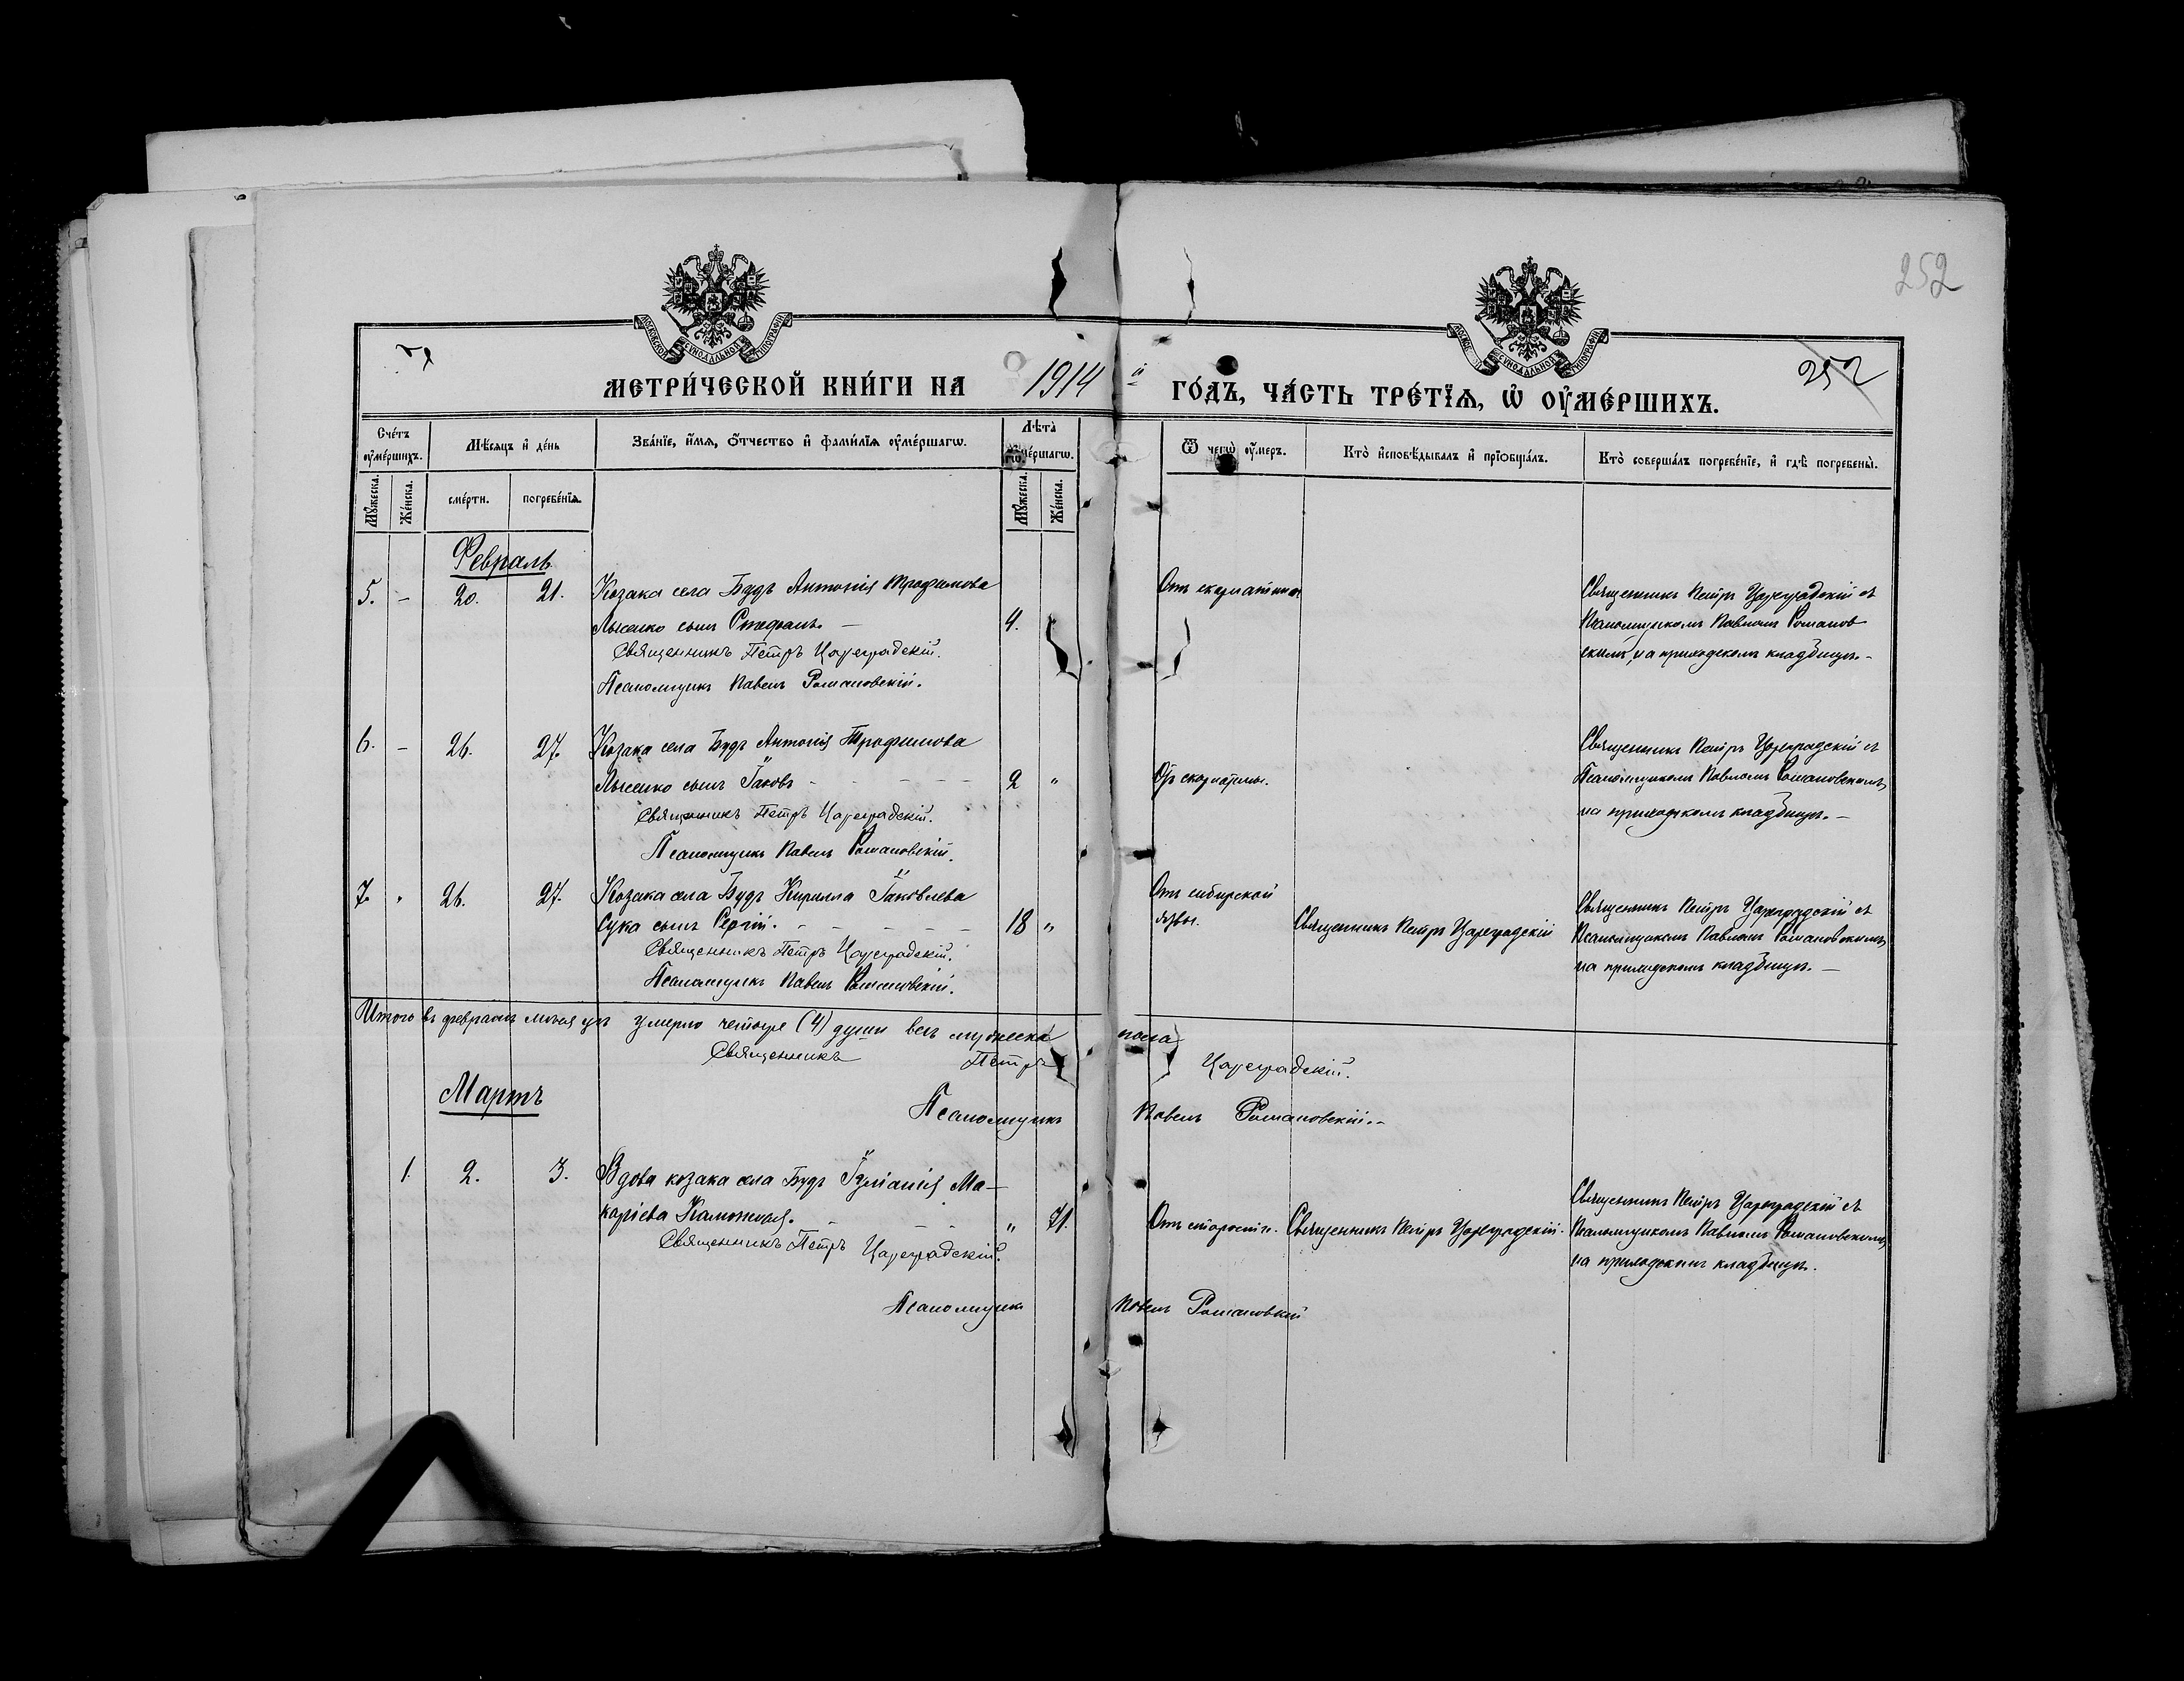 252
252
МОСКОВСКОЙ СѴНОДАЛЬНОЙ ТИПОГРАФІИ
МЕТРИ́ЧЕСКОЙ КНИ́ГИ НА 1914 й ГО́ДЪ, ЧА́СТЬ ТРЕ́ТЇѦ, Ѡ ОУМЕ́РШИХЪ.
Сче́тъ оуме́ршихъ.
Мѣ́сяцъ и де́нь
Зва́нїе, и́мѧ, о́тчество и фами́лїѧ оуме́ршагѡ.
Лѣта̀ оуме́ршагѡ.
Ѿ чегѡ̀ оу́меръ.
Кто̀ исповѣ́дывалъ и прїобща́лъ.
Кто̀ соверша́лъ погребе́нїе, и гдѣ̀ погребены̀.
Мꙋ́жеска.
Же́нска.
сме́рти.
погребе́нїѧ.
Мꙋ́жеска.
Же́нска.
Февраль
5. - 20. 21. Козака села Будъ Антонія Трофимова
Лысенко сынъ Стефанъ. — 4.
Священникъ Петръ Цареградскій.
Псаломщикъ Павелъ Романовскій.
Отъ скарлатины
Священникъ Петръ Цареградскій съ
Псаломщикомъ Павломъ Романов
скимъ, на приходскомъ кладбищѣ.-
6. - 26. 27. Козака села Будъ Антонія Трофимова
Лысенко сынъ Іаковъ - 2 "
Священникъ Петръ Цареградскій.
Псаломщикъ Павелъ Романовскій.
От скарлатины.
Священникъ Петръ Цареградскій съ
Псаломщикомъ Павломъ Романовскимъ,
на приходскомъ кладбищѣ. —
7. " 26. 27. Козака села Будъ Кирилла Іаковлева
Сука сынъ Сергій. - 18 "
Священникъ Петръ Цареградскій.
Псаломщикъ Павелъ Романовскій.
Отъ сибирской
язвы.
Священникъ Петръ Цареградскій
Священникъ Петръ Цареградскій съ
Псаломщикомъ Павломъ Романовскимъ,
на приходскомъ кладбищѣ. —
Итого въ февралѣ мѣсяцѣ умерло четыре (4) души всѣ мужеска пола
Священникъ Петръ Цареградскій.
Мартъ
Псаломщикъ Павелъ Романовскій.-
1. 2. 3. Вдова козака села Будъ Іуліанія Ма-
каріева " 71.
Священникъ Петръ Цареградскій.
Псаломщикъ Павелъ Романовскій
Отъ старости.
Священникъ Петръ Цареградскій.
Священникъ Петръ Цареградскій съ
Псаломщикомъ Павломъ Романовскимъ,
на приходскомъ кладбищѣ.